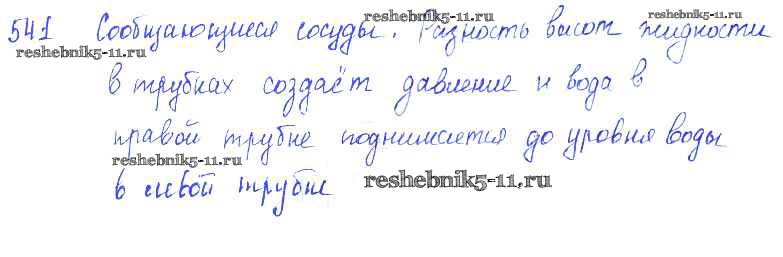 reshebnik5-11.ru reshebnik5-11.ru
541 Сообщающиеся сосуды. Разность высот жидкости
reshebnik5-11.ru
в трубках создаёт давление и вода в
правой трубке поднимается до уровня воды
reshebnik5-11.ru
в левой трубке reshebnik5-11.ru